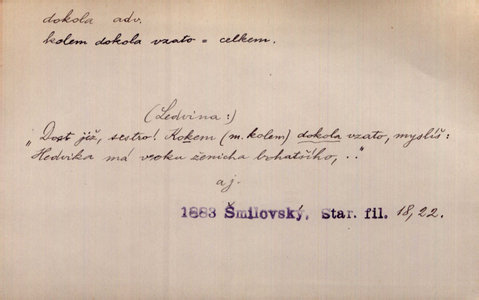 dokola adv.
kolem dokola vzato = celkem.
(Ledvina:)
„Dost již, sestro! Kokem (m. kolem) dokola vzato, myslíš:
Hedvika má vzoku ženicha bohatšího, . .“
aj.
1883 Šmilovský, Star. fil. 18, 22.